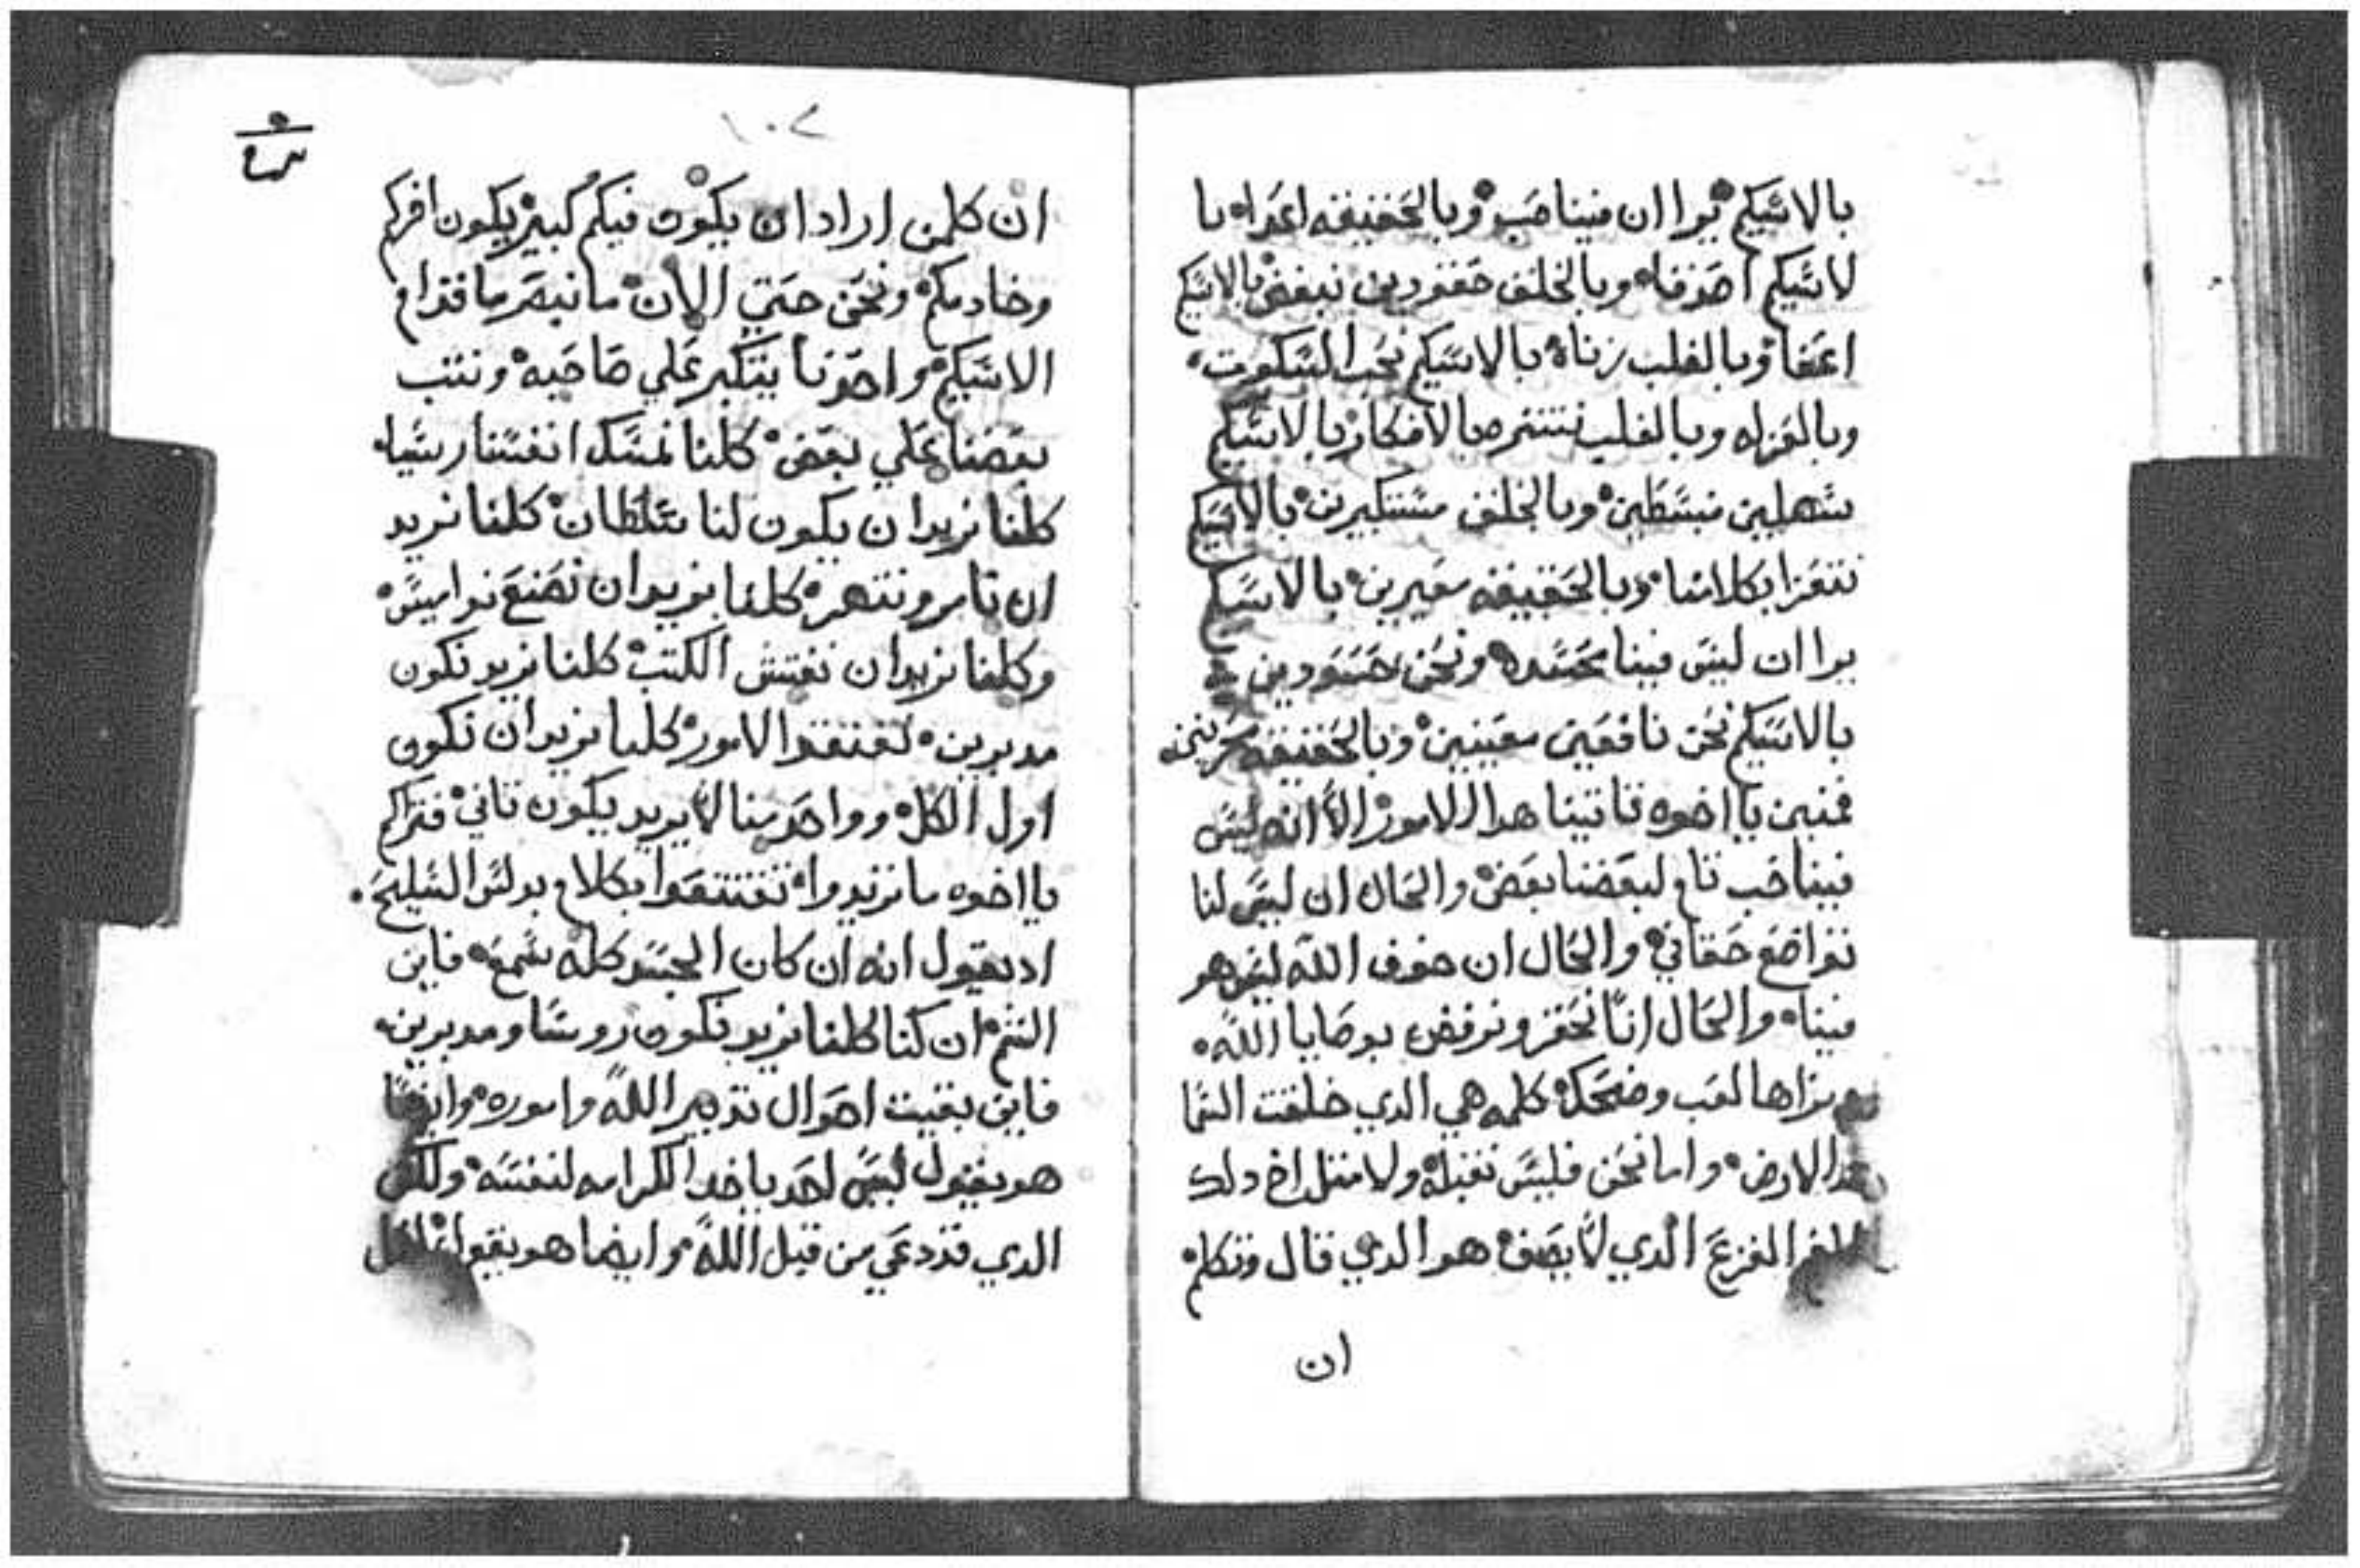 بالاسكيم يرا ان فينا حب وبالحقيقه اعدا با
لاسكيم اخوفا وبالخلف حقودين نبغض بالاسكيم
اعفا وبالقلب زناه بالاسكيم نحب السكوت
وبالعزله وبالقلب نتنزه بالافكار بالاسكيم
سهلين منبسطين وبالخلف مستكبرين بالاسكيم
نتعزا بكلامنا وبالحقيقه معيرين بالاسكيم
يرا ان ليس فينا حسد ونحن حسودين
بالاسكيم نحن نافعين معينين وبالحقيقه
فمنين يا اخوه تاتينا هدا الامور الا انه ليس
فينا حب تام لبعضنا بعض والحال ان ليس لنا
تواضع حقاني والحال ان خوف الله ليس هو
فينا والحال انا نحقر ونرفض بوصايا الله
ونراها لعب وضحك كلمه هي الدي خلقت السما
والارض واما نحن فليس نقبله ولا نمتل اخ دلك
الفزع الدي لا يصف هو الدي قال وتكلم
ان
١٠٢
ان كلمن اراد ان يكون فيكم كبير يكون اخركم
وخادمكم ونحن حتي الان ما نبصر ما قدام
الاسكيم واحدنا يتكبر علي صاحبه ونتب
بعضنا علي بعض كلنا نمسك انفسنا ريسا
كلنا نريد ان يكون لنا سلطان كلنا نريد
ان نامر وننهر كلنا نريد ان نصنع نواميس
وكلنا نريد ان نفتش الكتب كلنا نريد نكون
مدبرين لنفتقد الامور كلنا نريد ان نكون
اول الكل وواحد منا لا يريد يكون تاني فتراكم
يا اخوه ما تريدوا تقتنعوا بكلام بولس السليح
اد يقول انه ان كان الجسد كله سمع فاين
الشم ان كنا كلنا نريد نكون روسا ومدبرين
فاين بقيت احوال تدبير الله واموره وايضا
هو يقول ليس احد ياخد الكرامه لنفسه ولكن
الدي قد دعي من قبل الله وايضا هو يقول